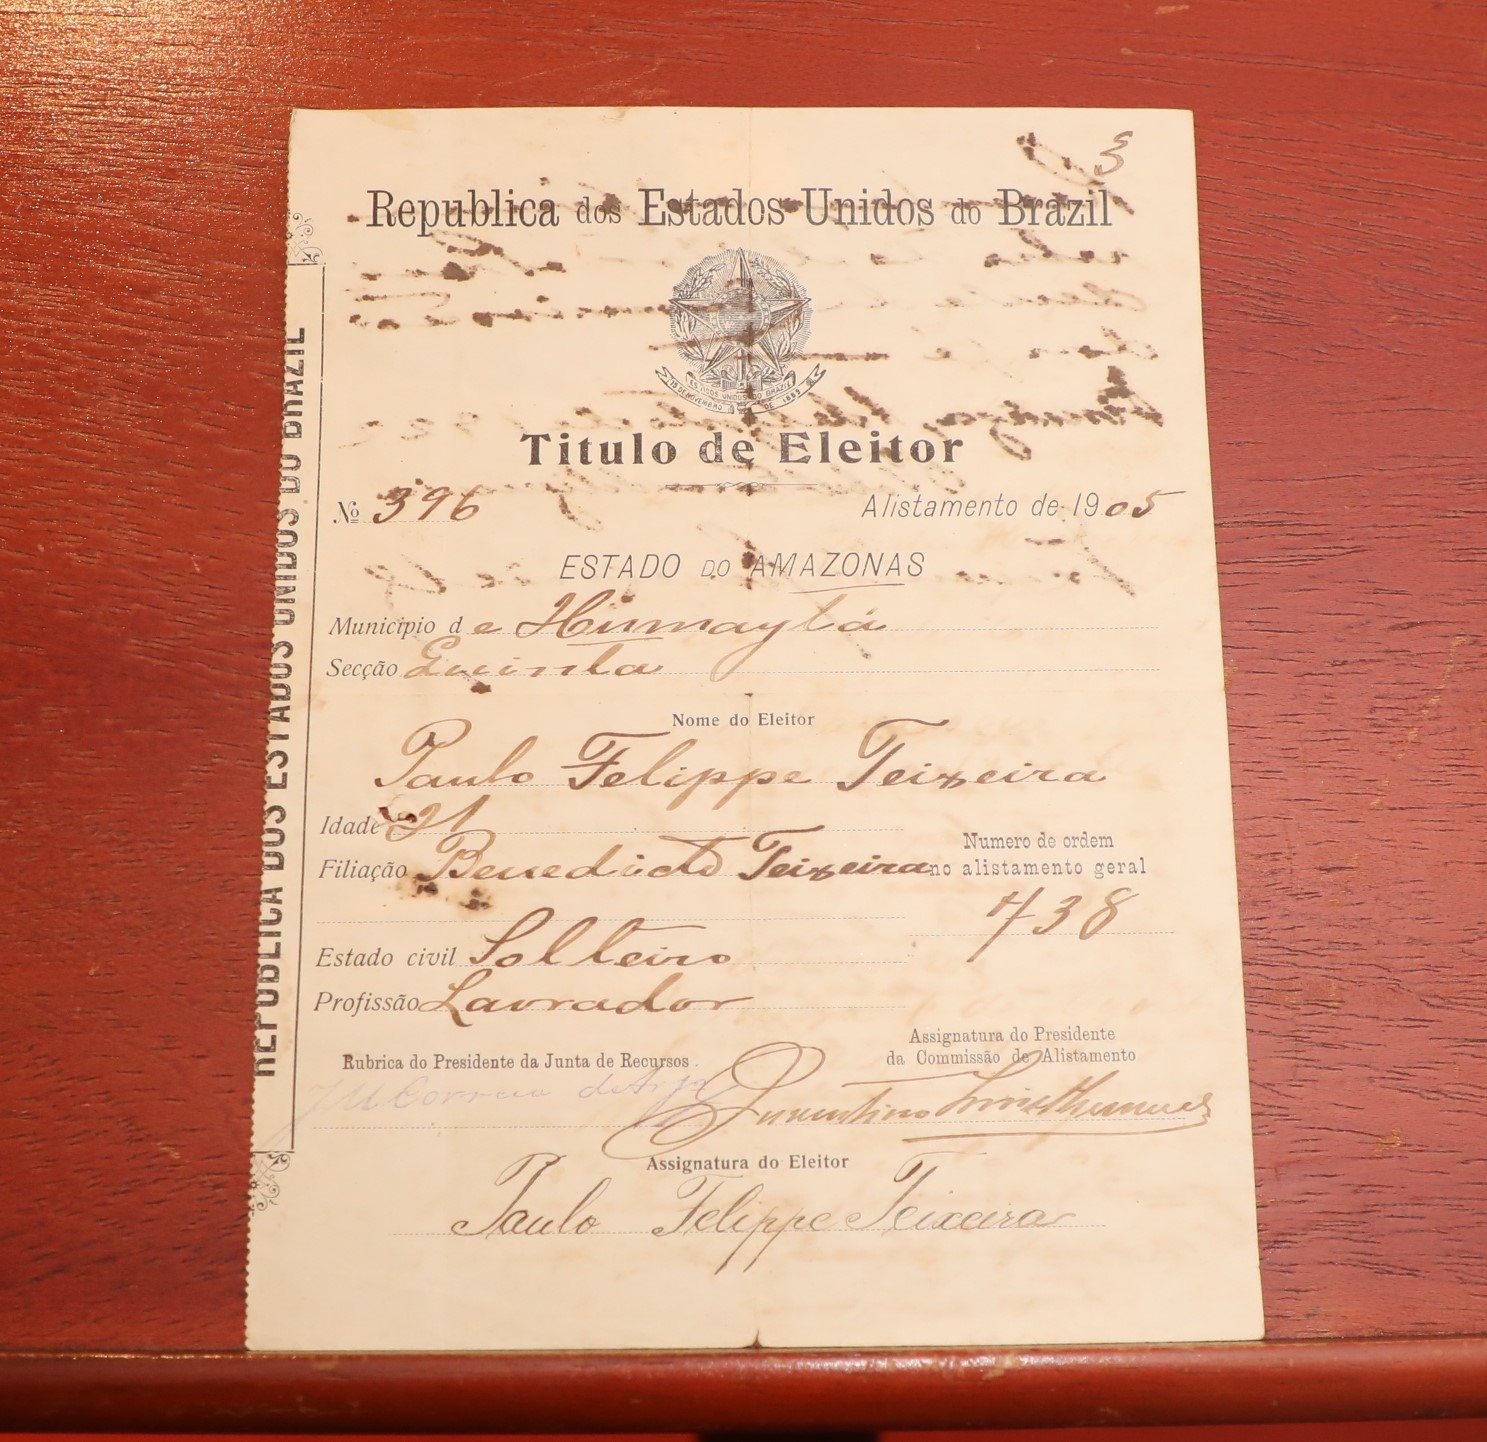 3
Republica dos Estados Unidos do Brazil
ESTADOS UNIDOS DO BRAZIL
15 DE NOVEMBRO DE 1889
Titulo de Eleitor
Nº 396 Alistamento de 1905
ESTADO DO AMAZONAS
Municipio de Humaytá
Secção Quinta
Nome do Eleitor
Paulo Felippe Teixeira
Idade 21
Filiação Benedicto Teixeira
Numero de ordem
no alistamento geral
738
Estado civil Solteiro
Profissão Lavrador
Assignatura do Presidente
da Commissão de Alistamento
Rubrica do Presidente da Junta de Recursos
Correia
Juventino
Assignatura do Eleitor
Paulo Felippe Teixeira
REPUBLICA DOS ESTADOS UNIDOS DO BRAZIL